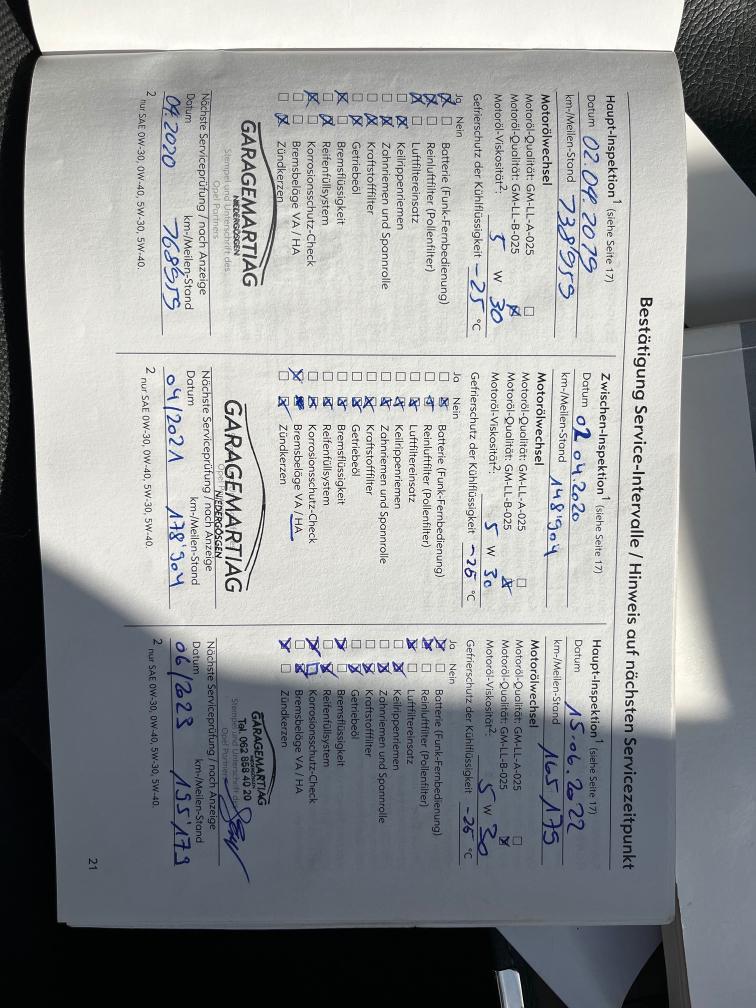 Bestätigung Service-Intervalle / Hinweis auf nächsten Servicezeitpunkt
Haupt-Inspektion¹ (siehe Seite 17)
Datum 02.04.2019
km-/Meilen-Stand 138959
Motorölwechsel
Motoröl-Qualität: GM-LL-A-025
Motoröl-Qualität: GM-LL-B-025
Motoröl-Viskosität²: 5 W 30
Gefrierschutz der Kühlflüssigkeit -25 °C
Ja Nein
Batterie (Funk-Fernbedienung)
Reinluftfilter (Pollenfilter)
Luftfiltereinsatz
Keilrippenriemen
Zahnriemen und Spannrolle
Kraftstofffilter
Getriebeöl
Bremsflüssigkeit
Reifenfüllsystem
Korrosionsschutz-Check
Bremsbeläge VA / HA
Zündkerzen
GARAGEMARTIAG
NIEDERGÖSGEN
Stempel und Unterschrift des
Opel Partners
Nächste Serviceprüfung / nach Anzeige
Datum km-/Meilen-Stand
04.2020 168959
2 nur SAE 0W-30, 0W-40, 5W-30, 5W-40.
Zwischen-Inspektion¹ (siehe Seite 17)
Datum 02 04.2020
km-/Meilen-Stand 148'904
Motorölwechsel
Motoröl-Qualität: GM-LL-A-025
Motoröl-Qualität: GM-LL-B-025
Motoröl-Viskosität²: 5 W 30
Gefrierschutz der Kühlflüssigkeit -25 °C
Ja Nein
Batterie (Funk-Fernbedienung)
Reinluftfilter (Pollenfilter)
Luftfiltereinsatz
Keilrippenriemen
Zahnriemen und Spannrolle
Kraftstofffilter
Getriebeöl
Bremsflüssigkeit
Reifenfüllsystem
Korrosionsschutz-Check
Bremsbeläge VA / HA
Zündkerzen
GARAGEMARTIAG
NIEDERGÖSGEN
Nächste Serviceprüfung / nach Anzeige
Datum km-/Meilen-Stand
04/2021 178'904
2 nur SAE 0W-30, 0W-40, 5W-30, 5W-40.
Haupt-Inspektion¹ (siehe Seite 17)
Datum 15.06.2022
km-/Meilen-Stand 165175
Motorölwechsel
Motoröl-Qualität: GM-LL-A-025
Motoröl-Qualität: GM-LL-B-025
Motoröl-Viskosität²: 5 W 30
Gefrierschutz der Kühlflüssigkeit -25 °C
Ja Nein
Batterie (Funk-Fernbedienung)
Reinluftfilter (Pollenfilter)
Luftfiltereinsatz
Keilrippenriemen
Zahnriemen und Spannrolle
Kraftstofffilter
Getriebeöl
Bremsflüssigkeit
Reifenfüllsystem
Korrosionsschutz-Check
Bremsbeläge VA / HA
Zündkerzen
GARAGEMARTIAG
Tel. 062 858 40 20
Stempel und Unterschrift des
Opel Partners
Nächste Serviceprüfung / nach Anzeige
Datum km-/Meilen-Stand
06/2023 195'179
2 nur SAE 0W-30, 0W-40, 5W-30, 5W-40.
21